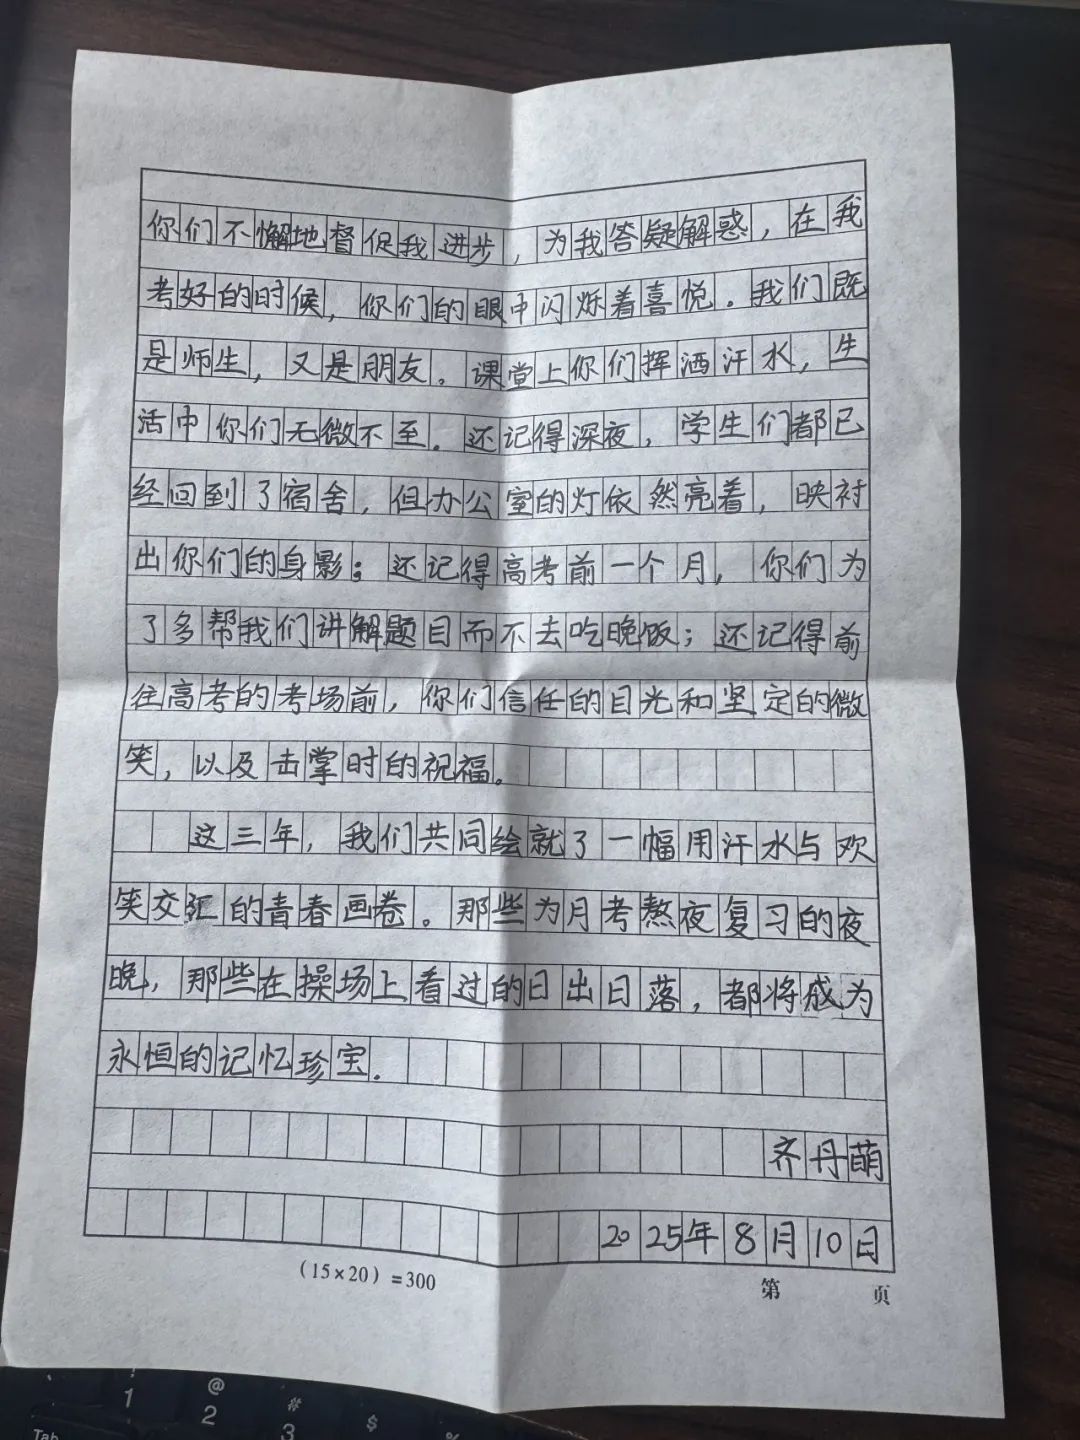 你们不懈地督促我进步，为我答疑解惑，在我
考好的时候，你们的眼中闪烁着喜悦。我们既
是师生，又是朋友。课堂上你们挥洒汗水，生
活中你们无微不至。还记得深夜，学生们都已
经回到了宿舍，但办公室的灯依然亮着，映衬
出你们的身影；还记得高考前一个月，你们为
了多帮我们讲解题目而不去吃晚饭；还记得前
往高考的考场前，你们信任的目光和坚定的微
笑，以及击掌时的祝福。
这三年，我们共同绘就了一幅用汗水与欢
笑交汇的青春画卷。那些为月考熬夜复习的夜
晚，那些在操场上看过的日出日落，都将成为
永恒的记忆珍宝.
齐丹萌
2025年8月10日
(15×20)=300
第 页
! @ # $ %
Tab 1 2 3